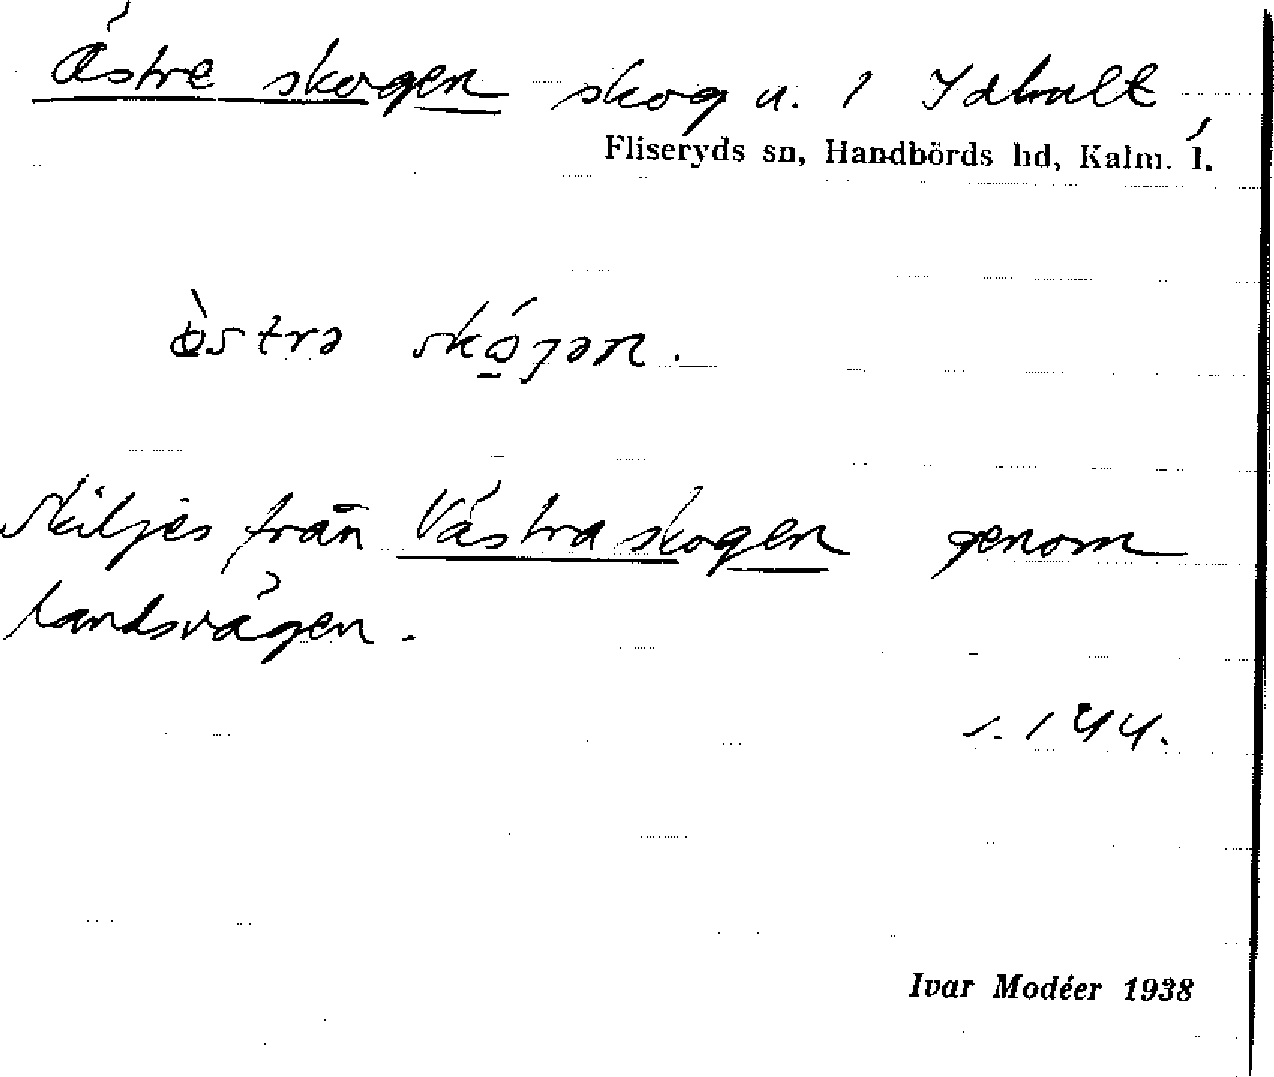 Östre skogen skog u. 1 Idhult
Fliseryds sn, Handbörds hd, Kalm. l.
östrə skógən.
Skiljes från Västra skogen genom
landsvägen.
s. 144.
Ivar Modéer 1938